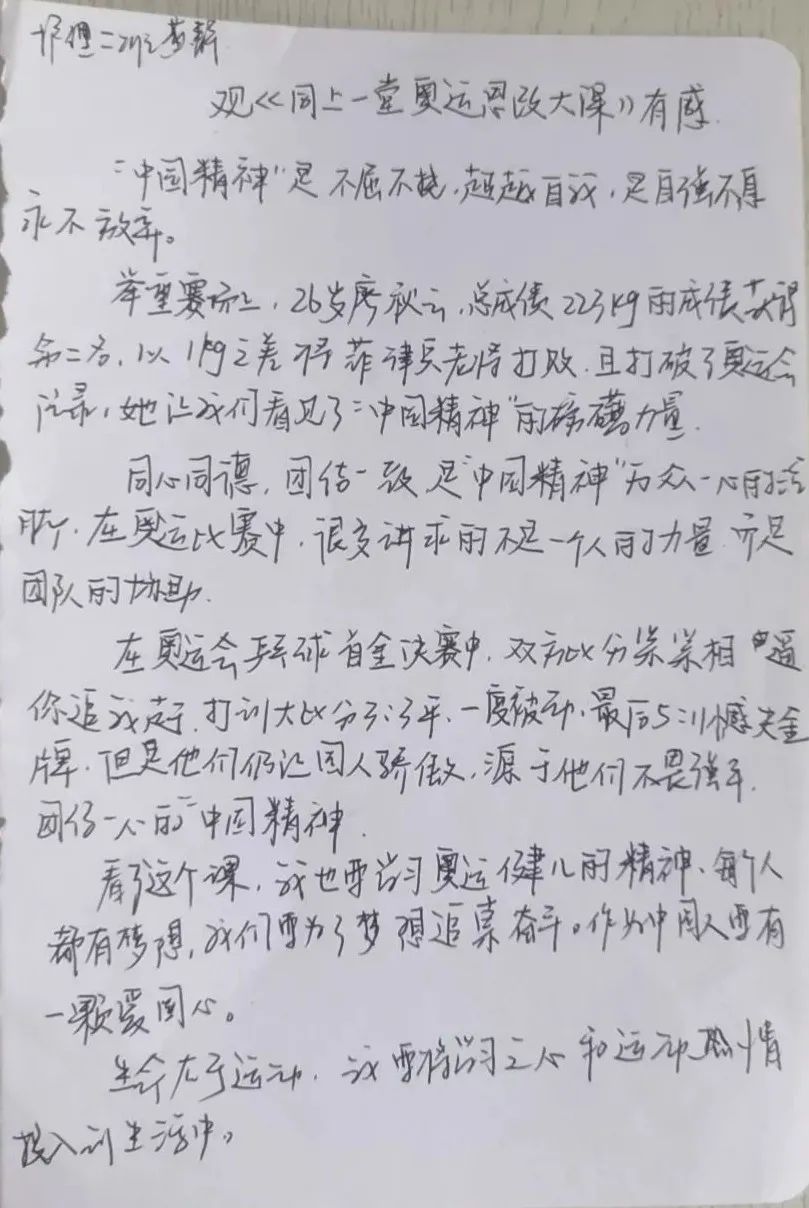 二班
观《同上一堂奥运思政大课》有感
"中国精神"是不屈不挠,超越自我,是自强不息
永不放弃。
举重赛场上,26岁廖秋云,总成绩223kg的成绩获得
第二名,以1kg之差 菲律宾老将打败.且打破了奥运会
记录,她让我们看见了"中国精神"的磅礴力量.
同心同德,团结一致是"中国精神"万众一心的
所在,在奥运比赛中,很多讲求的不是一个人的力量 亦是
团队的协助.
在奥运会乒乓球首金决赛中,双方比分紧紧相逼
你追我赶,打到大比分3:3平,一度被动,最后 憾失金
牌.但是他们仍让国人骄傲,源于他们不畏强手.
团结一心的"中国精神.
看了这个课,我也要学习奥运健儿的精神、每个人
都有梦想,我们要为了梦想追求奋斗。作为中国人要有
一颗爱国心。
生命在于运动,我要将学习之心和运动热情
投入到生活中。